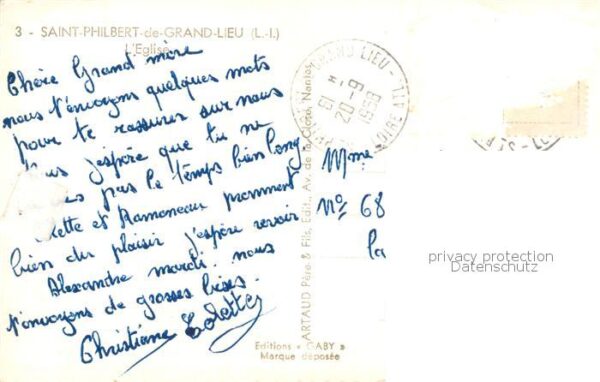 3 - SAINT-PHILBERT-de-GRAND-LIEU (L.-I.)
L'Eglise
Chère Grand mère
nous t'envoyons quelques mots
pour te rassurer sur nous
j'espère que tu ne
pas le temps bien long
et Ramoneau prennent
bien du plaisir j'espère revoir
Alexandre mardi. nous
t'envoyons de grosses bises.
Christiane Colette
GRAND LIEU
20-9
1958
LOIRE
ARTAUD Père & Fils, Edit. Av. de la Close, Nantes
Mme
No 68
la
privacy protection
Datenschutz
Editions « GABY »
Marque déposée